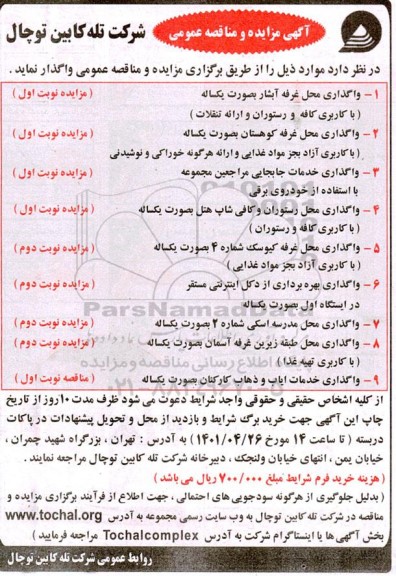 آگهی مزایده و مناقصه عمومی
شرکت تله کابین توچال
در نظر دارد موارد ذیل را از طریق برگزاری مزایده و مناقصه عمومی واگذار نماید .
۱ - واگذاری محل غرفه آبشار بصورت یکساله ( مزایده نوبت اول )
( با کاربری کافه و رستوران و ارائه تنقلات )
۲ - واگذاری محل غرفه کوهستان بصورت یکساله ( مزایده نوبت اول )
( با کاربری آزاد بجز مواد غذایی و ارائه هرگونه خوراکی و نوشیدنی
۳ - واگذاری خدمات جابجایی مراجعین مجموعه ( مزایده نوبت اول )
با استفاده از خودروی برقی
۴ - واگذاری محل رستوران و کافی شاپ هتل بصورت یکساله ( مزایده نوبت اول )
( با کاربری کافه و رستوران )
۵ - واگذاری محل غرفه کیوسک شماره ۴ بصورت یکساله ( مزایده نوبت دوم )
( با کاربری آزاد بجز مواد غذایی )
۶ - واگذاری بهره برداری از دکل اینترنتی مستقر ( مزایده نوبت دوم )
در ایستگاه اول بصورت یکساله
ParsNamadData
۷ - واگذاری محل مدرسه اسکی شماره ۲ بصورت یکساله ( مزایده نوبت دوم )
۸ - واگذاری محل طبقه زیرین غرفه آسمان بصورت یکساله ( مزایده نوبت دوم )
( با کاربری تهیه غذا )
۹ - واگذاری خدمات ایاب و ذهاب کارکنان بصورت یکساله ( مناقصه نوبت اول )
از کلیه اشخاص حقیقی و حقوقی واجد شرایط دعوت می شود ظرف مدت ۱۰ روز از تاریخ
چاپ این آگهی جهت خرید برگ شرایط و بازدید از محل و تحویل پیشنهادات در پاکات
دربسته ( تا ساعت ۱۴ مورخ ۱۴۰۱/۰۴/۲۶ ) به آدرس : تهران ، بزرگراه شهید چمران ،
خیابان یمن ، انتهای خیابان ولنجک ، دبیرخانه شرکت تله کابین توچال مراجعه نمایند .
( هزینه خرید فرم شرایط مبلغ ۷۰۰/۰۰۰ ریال می باشد )
( بدلیل جلوگیری از هرگونه سودجویی های احتمالی ، جهت اطلاع از فرآیند برگزاری مزایده و
مناقصه در شرکت تله کابین توچال به وب سایت رسمی مجموعه به آدرس www.tochal.org
بخش آگهی ها یا اینستاگرام شرکت به آدرس Tochalcomplex مراجعه فرمایید )
روابط عمومی شرکت تله کابین توچال